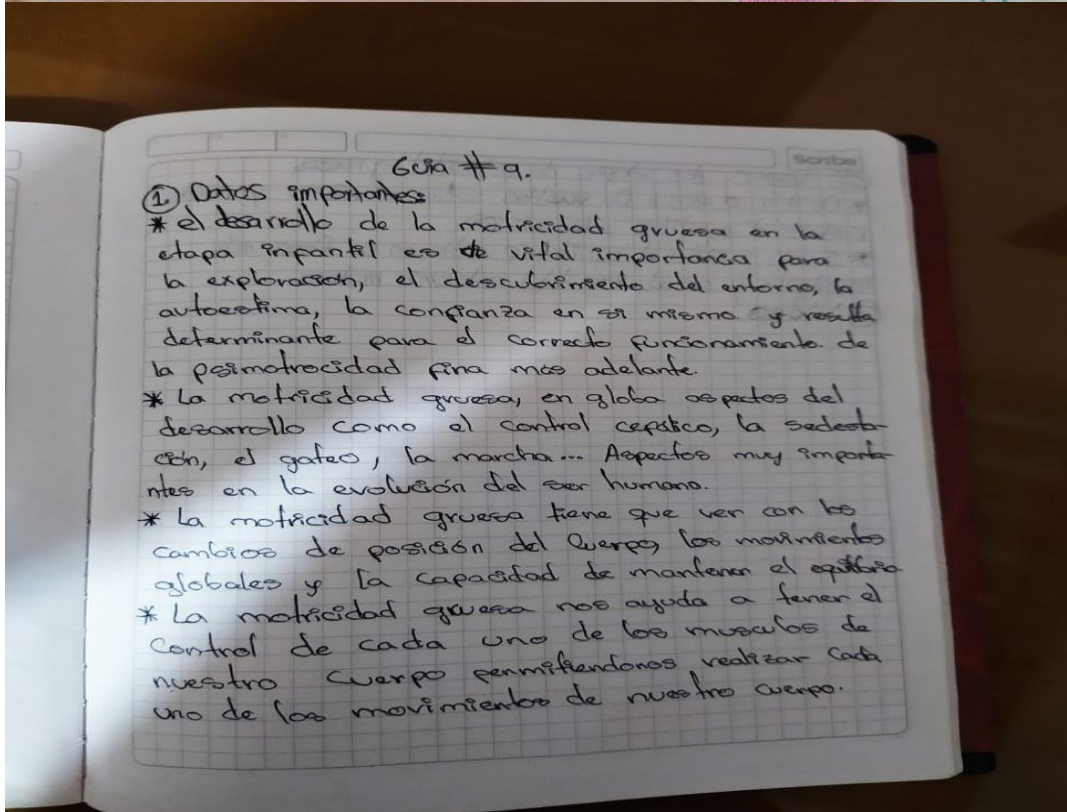 Scribe
Guia # 9.
① Datos importantes:
* el desarrollo de la motricidad gruesa en la
etapa infantil es de vital importancia para
la exploración, el descubrimiento del entorno, la
autoestima, la confianza en si mismo y resulta
determinante para el correcto funcionamiento de
la psimotrocidad fina mas adelante.
* La motricidad gruesa, en globa aspectos del
desarrollo como el control cefálico, la sedesta-
ción, el gateo, la marcha... Aspectos muy importa-
ntes en la evolución del ser humano.
* La motricidad gruesa tiene que ver con los
cambios de posición del cuerpo, los movimientos
globales y la capacidad de mantener el equilibrio.
* La motricidad gruesa nos ayuda a tener el
control de cada uno de los musculos de
nuestro cuerpo permitiendonos realizar cada
uno de los movimientos de nuestro cuerpo.